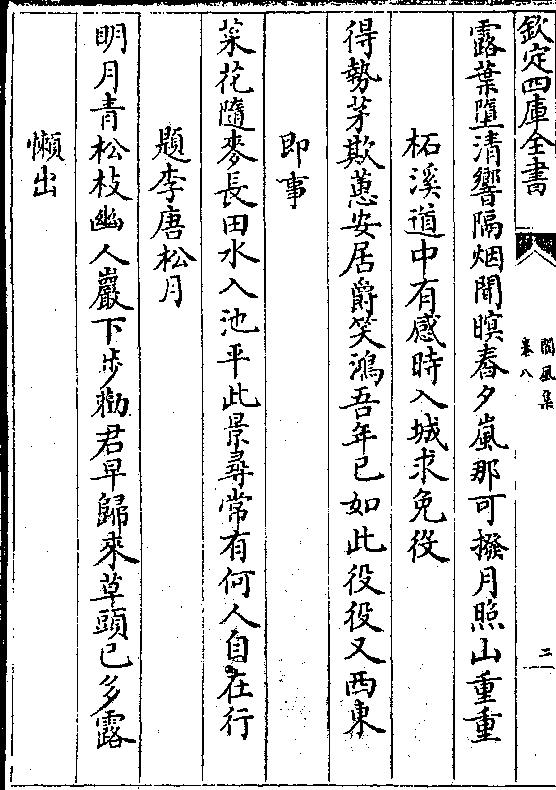 欽定四庫全書
閬風集
卷八
三
露葉墮清響隔烟聞暝舂夕嵐那可撥月照山重重
柘溪道中有感時入城求免役
得勢茅欺蕙安居爵笑鴻吾年已如此役役又西東
即事
菜花隨麥長田水入池平此景尋常有何人自在行
題李唐松月
明月青松枝幽人巖下步勸君早歸來草頭已多露
懶出